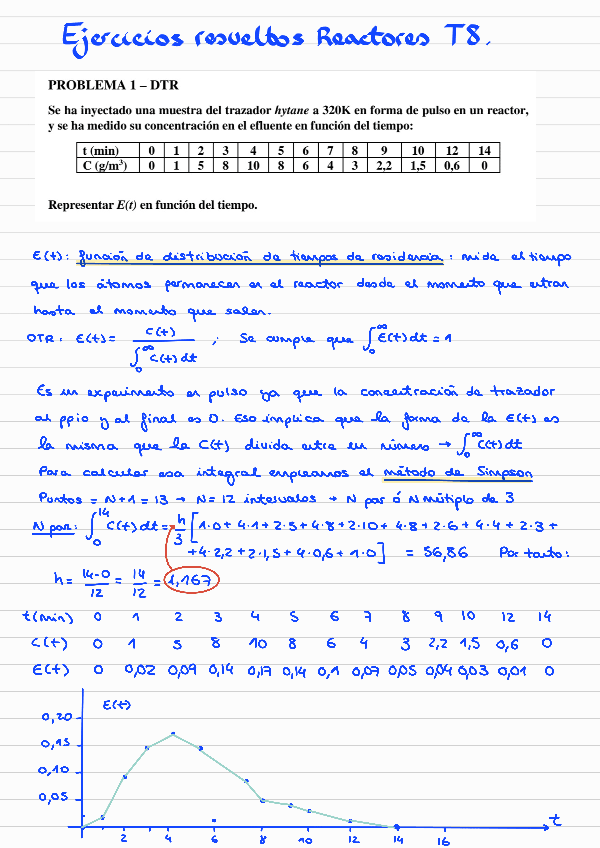 Ejercicios resueltos Reactores T8.
PROBLEMA 1 – DTR
Se ha inyectado una muestra del trazador hytane a 320K en forma de pulso en un reactor,
y se ha medido su concentración en el efluente en función del tiempo:
t (min) 0 1 2 3 4 5 6 7 8 9 10 12 14
C (g/m³) 0 1 5 8 10 8 6 4 3 2,2 1,5 0,6 0
Representar E(t) en función del tiempo.
E(t): función de distribución de tiempos de residencia: mide el tiempo
que los átomos permanecen en el reactor desde el momento que entran
hasta el momento que salen.
DTR: E(t) = C(t) / ∫₀^∞ C(t) dt ; Se cumple que ∫₀^∞ E(t) dt = 1
Es un experimento en pulso ya que la concentración de trazador
al ppio y al final es 0. Eso implica que la forma de la E(t) es
la misma que la C(t) divida entre un número → ∫₀^∞ C(t) dt
Para calcular esa integral empleamos el método de Simpson
Puntos = N+1 = 13 → N = 12 intervalos → N par ó N múltiplo de 3
N par: ∫₀^14 C(t) dt = h/3 [1·0 + 4·1 + 2·5 + 4·8 + 2·10 + 4·8 + 2·6 + 4·4 + 2·3 +
+ 4·2,2 + 2·1,5 + 4·0,6 + 1·0] = 56,86 Por tanto:
h = 14-0/12 = 14/12 = 1,167
t(min) 0 1 2 3 4 5 6 7 8 9 10 12 14
C(t) 0 1 5 8 10 8 6 4 3 2,2 1,5 0,6 0
E(t) 0 0,02 0,09 0,14 0,17 0,14 0,1 0,07 0,05 0,04 0,03 0,01 0
E(t)
0,20
0,15
0,10
0,05
t
2 4 6 8 10 12 14 16